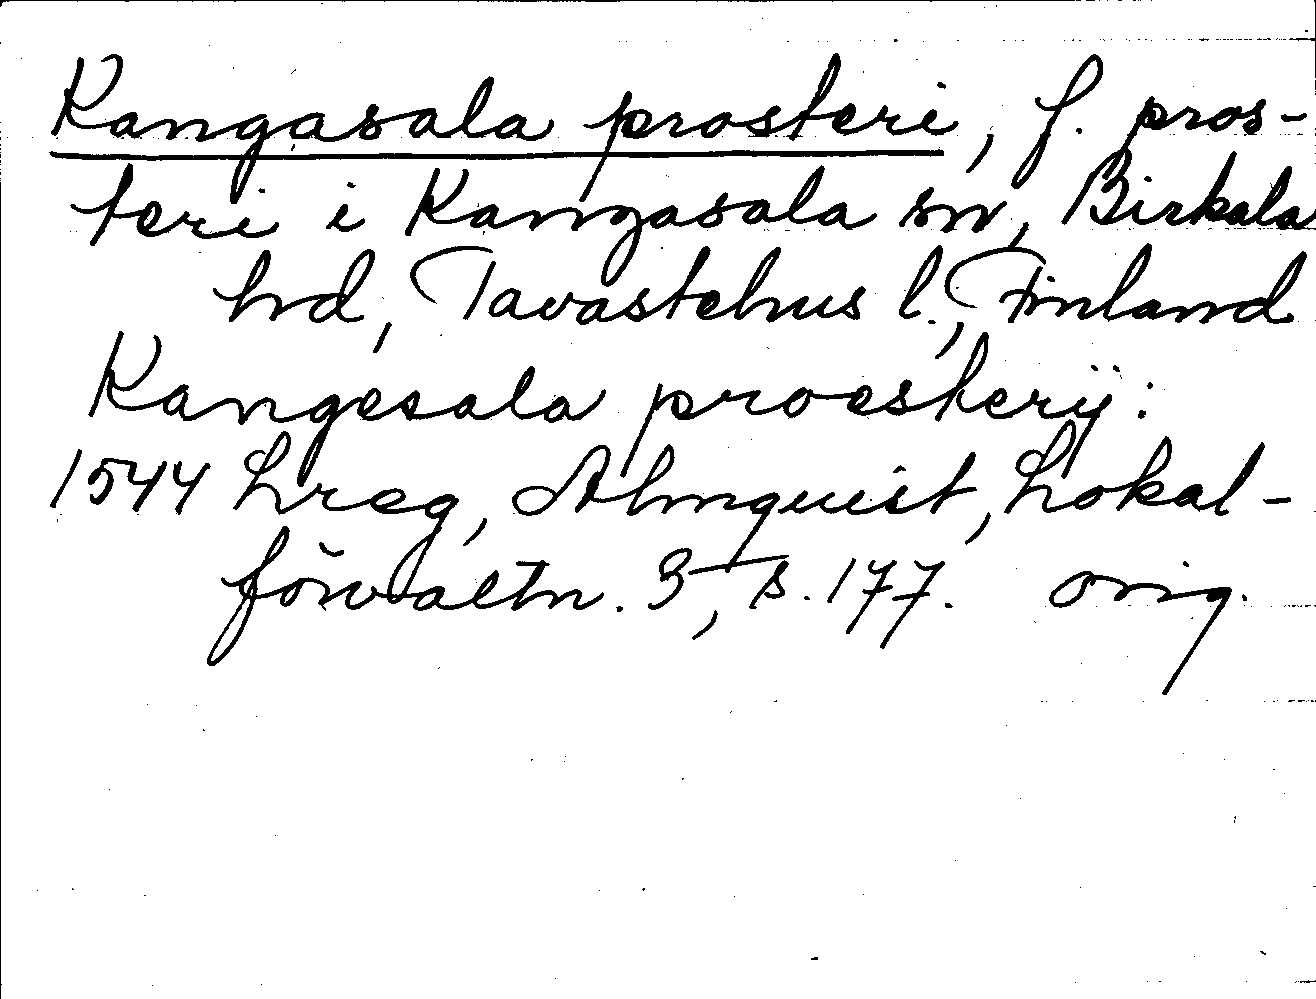 Kangasala prosteri, f. pros-
teri i Kangasala sn, Birkala
hd, Tavastehus l., Finland
Kangesala proesterÿ:
1544 Lreg, Almquist, Lokal-
förvaltn. 3, s. 177. orig.